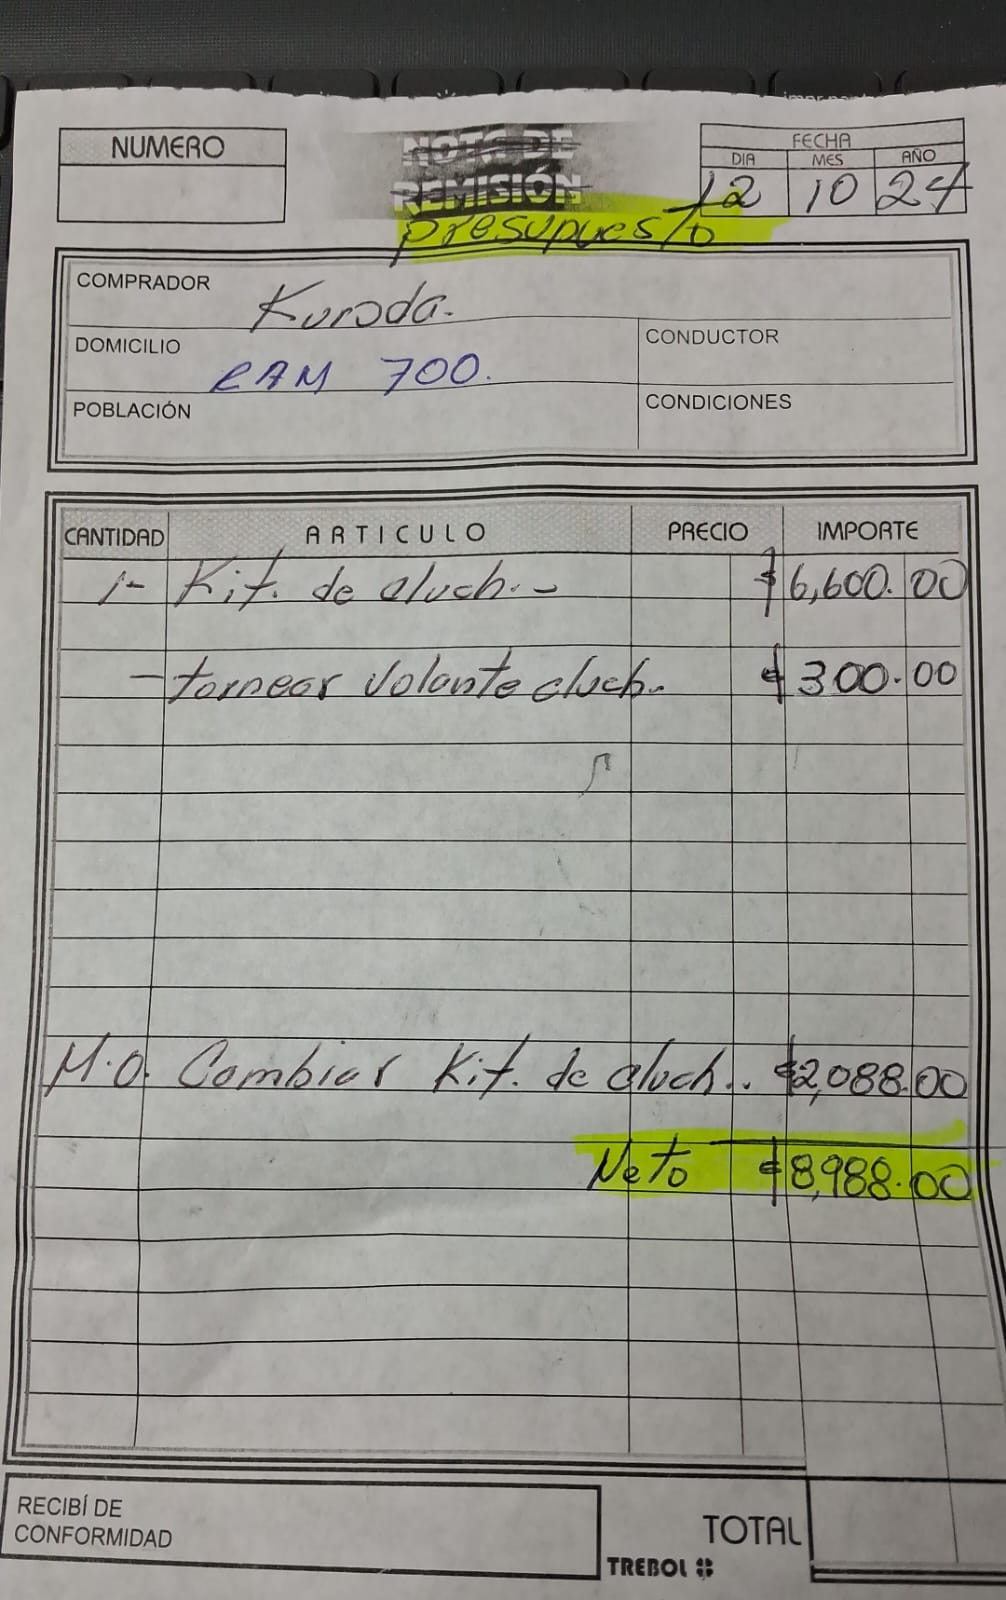 NUMERO
NOTA DE
REMISIÓN
Presupuesto
FECHA
DIA MES AÑO
12 10 24
COMPRADOR Kuroda.
DOMICILIO RAM 700.
CONDUCTOR
POBLACIÓN
CONDICIONES
CANTIDAD ARTICULO PRECIO IMPORTE
1- Kit. de cluch.- $6,600.00
- tornear volante cluch. $300.00
M.O. Cambiar Kit. de cluch.. $2,088.00
Neto $8,988.00
RECIBÍ DE
CONFORMIDAD
TOTAL
TREBOL